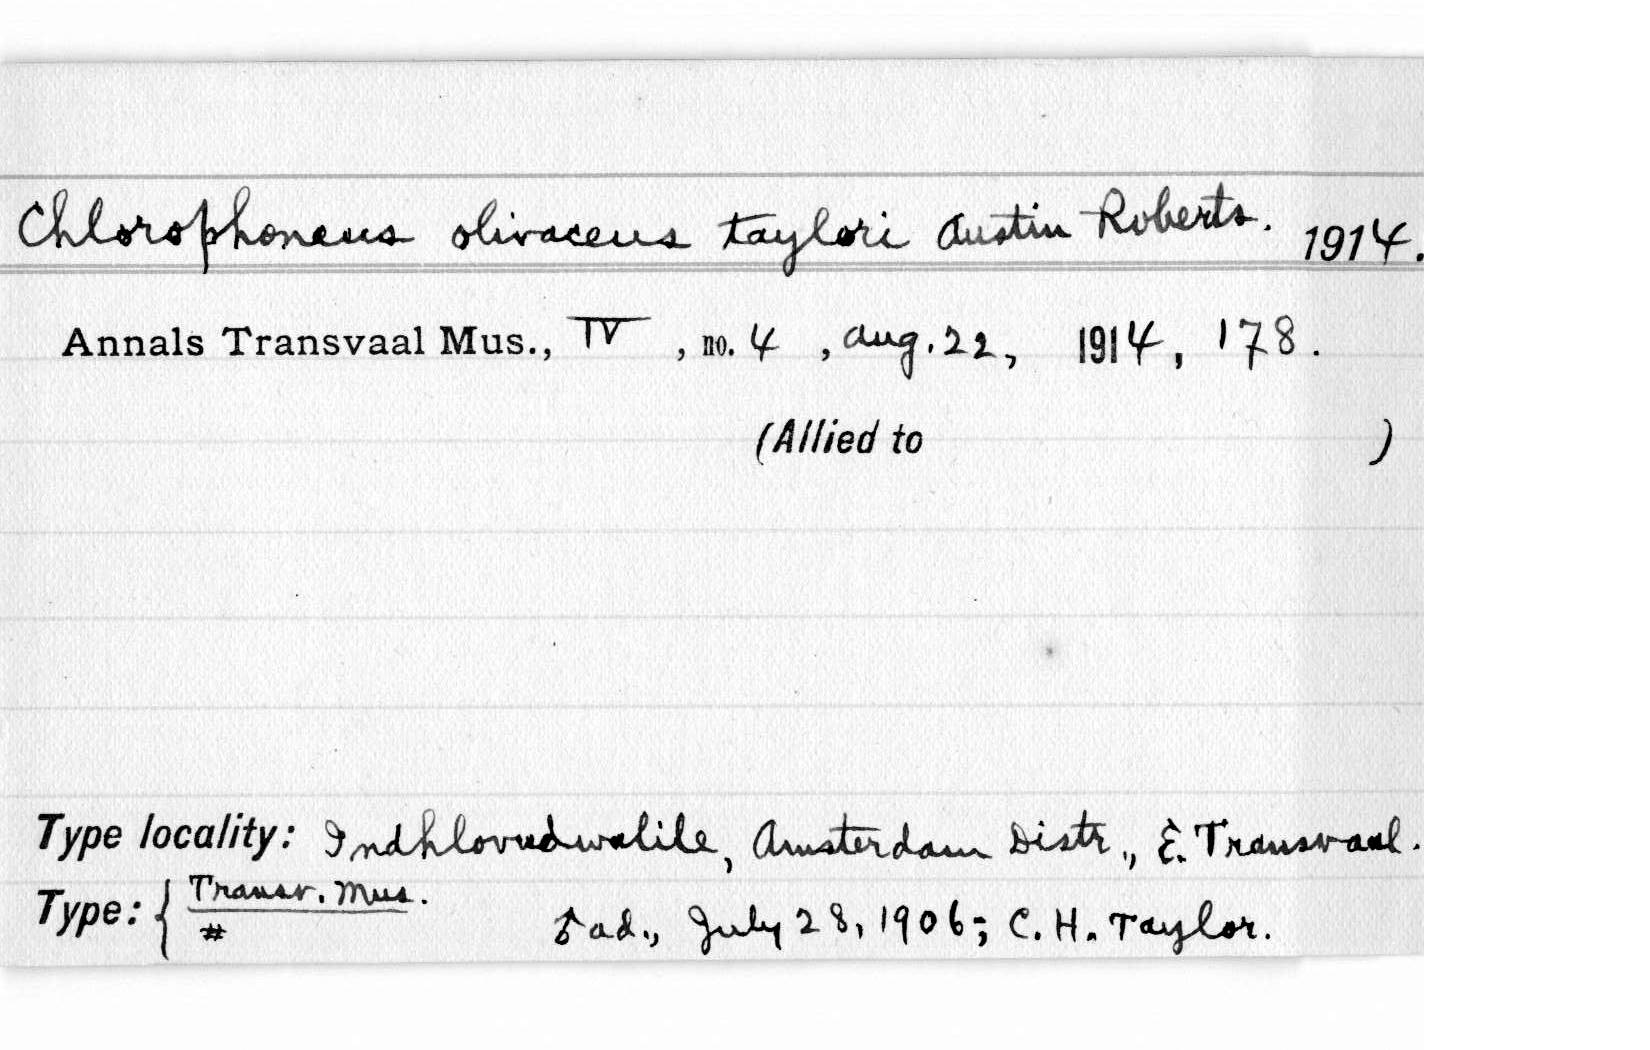 Chlorophoneus olivaceus taylori Austin Roberts. 1914.
Annals Transvaal Mus., IV, no. 4, Aug. 22, 1914, 178.
(Allied to )
Type locality: Indhlovudwalile, Amsterdam Distr., E. Transvaal.
Type: { Transv. Mus.
# ♂ ad., July 28, 1906; C. H. Taylor.